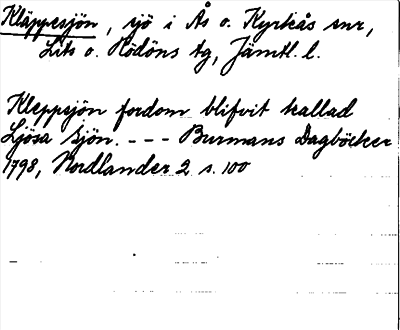 Kläppesjön, sjö i Ås o. Kyrkås snr,
Lits o. Rödöns tg, Jämtl. l.
Kleppsjön fordom blifvit kallad
Ljösa Sjön. --- Burmans Dagböcker
1798, Nordlander 2 s. 100